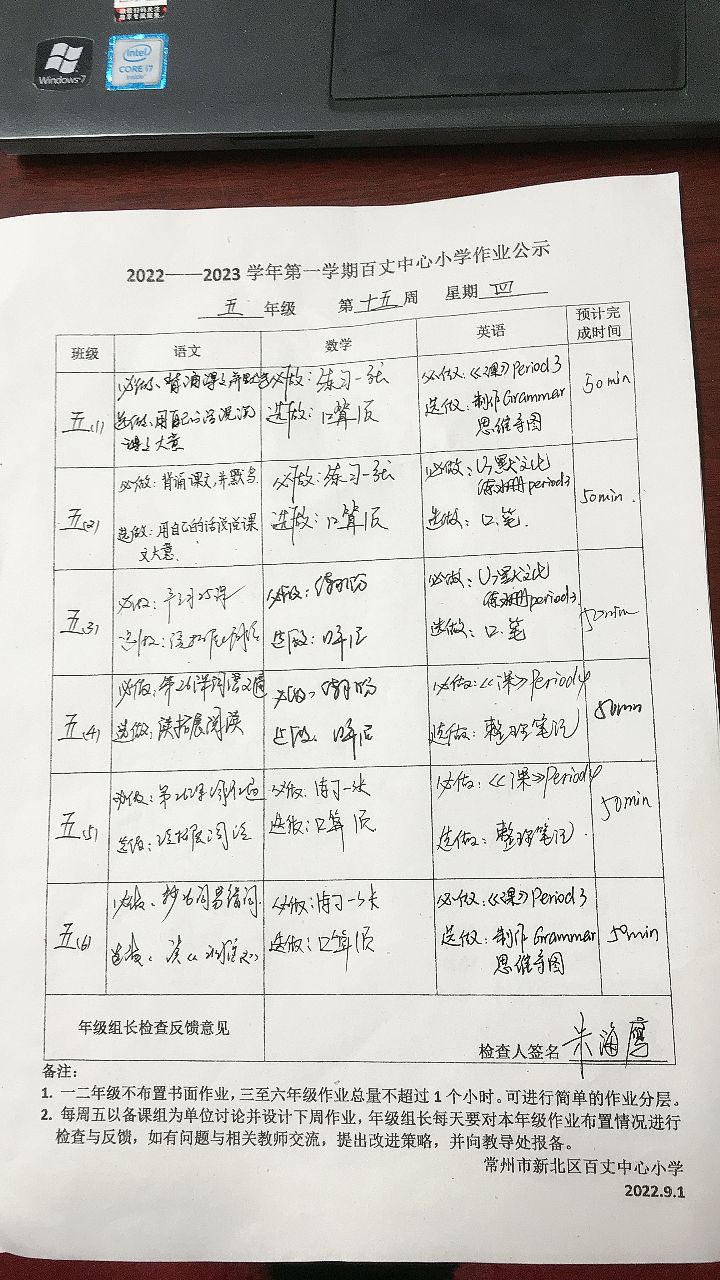 Windows 7
intel
CORE i7
inside
2022——2023 学年第一学期百丈中心小学作业公示
五 年级 第 十五 周 星期 四
班级 语文 数学 英语 预计完成时间
五(1)
必做:背诵课文并默写
选做:用自己的话说说
课文大意
必做:练习一张
选做:口算1页
必做:《课》Period 3
选做:制作Grammar
思维导图
50min
五(2)
必做:背诵课文并默写
选做:用自己的话说说课
文大意.
必做:练习一张
选做:口算1页
必做:U7默文化
练习册period3
选做:口.笔.
50min.
五(3)
必做:
选做:
必做:
选做:
必做:U7默文化
练习册period3.
选做:口.笔
50min
五(4)
必做:第26课
选做:读拓展阅读
必做:
选做:
必做:《课》Period4
选做:整理笔记
50min
五(5)
必做:第26课
选做:
必做:练习一张
选做:口算1页
必做:《课》Period4
选做:整理笔记.
50min
五(6)
必做:
选做:读《水浒文》
必做:练习一张
选做:口算1页
必做:《课》Period 3
选做:制作Grammar
思维导图
50min
年级组长检查反馈意见
检查人签名 朱海鹰
备注:
1. 一二年级不布置书面作业,三至六年级作业总量不超过 1 个小时。可进行简单的作业分层。
2. 每周五以备课组为单位讨论并设计下周作业,年级组长每天要对本年级作业布置情况进行
检查与反馈,如有问题与相关教师交流,提出改进策略,并向教导处报备。
常州市新北区百丈中心小学
2022.9.1